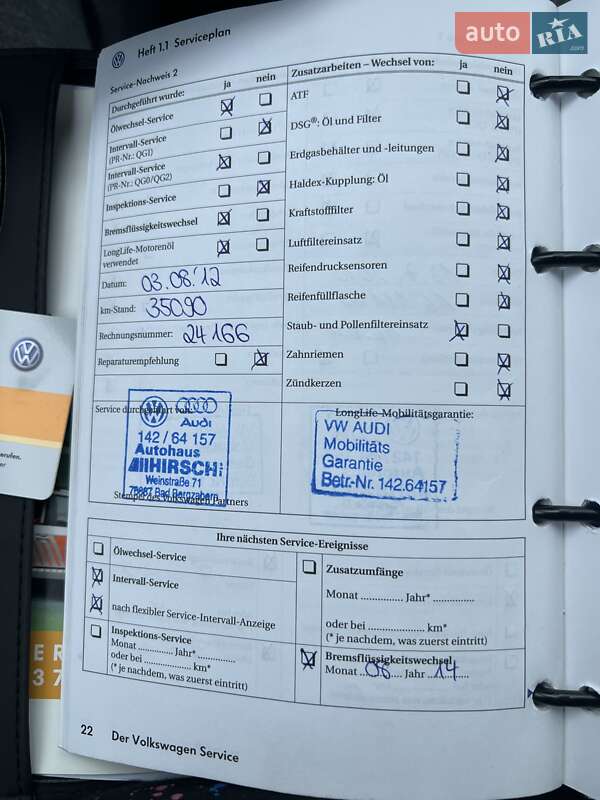 auto RIA .com
Heft 1.1 Serviceplan
Service-Nachweis 2
Durchgeführt wurde: ja nein
Ölwechsel-Service
Intervall-Service
(PR-Nr.: QG1)
Intervall-Service
(PR-Nr.: QG0/QG2)
Inspektions-Service
Bremsflüssigkeitswechsel
LongLife-Motorenöl
verwendet
Datum: 03.08.'12
km-Stand: 35090
Rechnungsnummer: 24166
Reparaturempfehlung
Zusatzarbeiten – Wechsel von: ja nein
ATF
DSG®: Öl und Filter
Erdgasbehälter und -leitungen
Haldex-Kupplung: Öl
Kraftstofffilter
Luftfiltereinsatz
Reifendrucksensoren
Reifenfüllflasche
Staub- und Pollenfiltereinsatz
Zahnriemen
Zündkerzen
Service durchgeführt von:
Audi
142/64 157
Autohaus
HIRSCH
Weinstraße 71
Bad Bergzabern
Stempel des Volkswagen Partners
LongLife-Mobilitätsgarantie:
VW AUDI
Mobilitäts
Garantie
Betr-Nr. 142.64157
Ihre nächsten Service-Ereignisse
Ölwechsel-Service
Intervall-Service
nach flexibler Service-Intervall-Anzeige
Inspektions-Service
Monat ............. Jahr* ..............
oder bei ..................... km*
(* je nachdem, was zuerst eintritt)
Zusatzumfänge
Monat ............... Jahr* ...............
oder bei ..................... km*
(* je nachdem, was zuerst eintritt)
Bremsflüssigkeitswechsel
Monat 08 Jahr 14
22 Der Volkswagen Service
E R
3 7